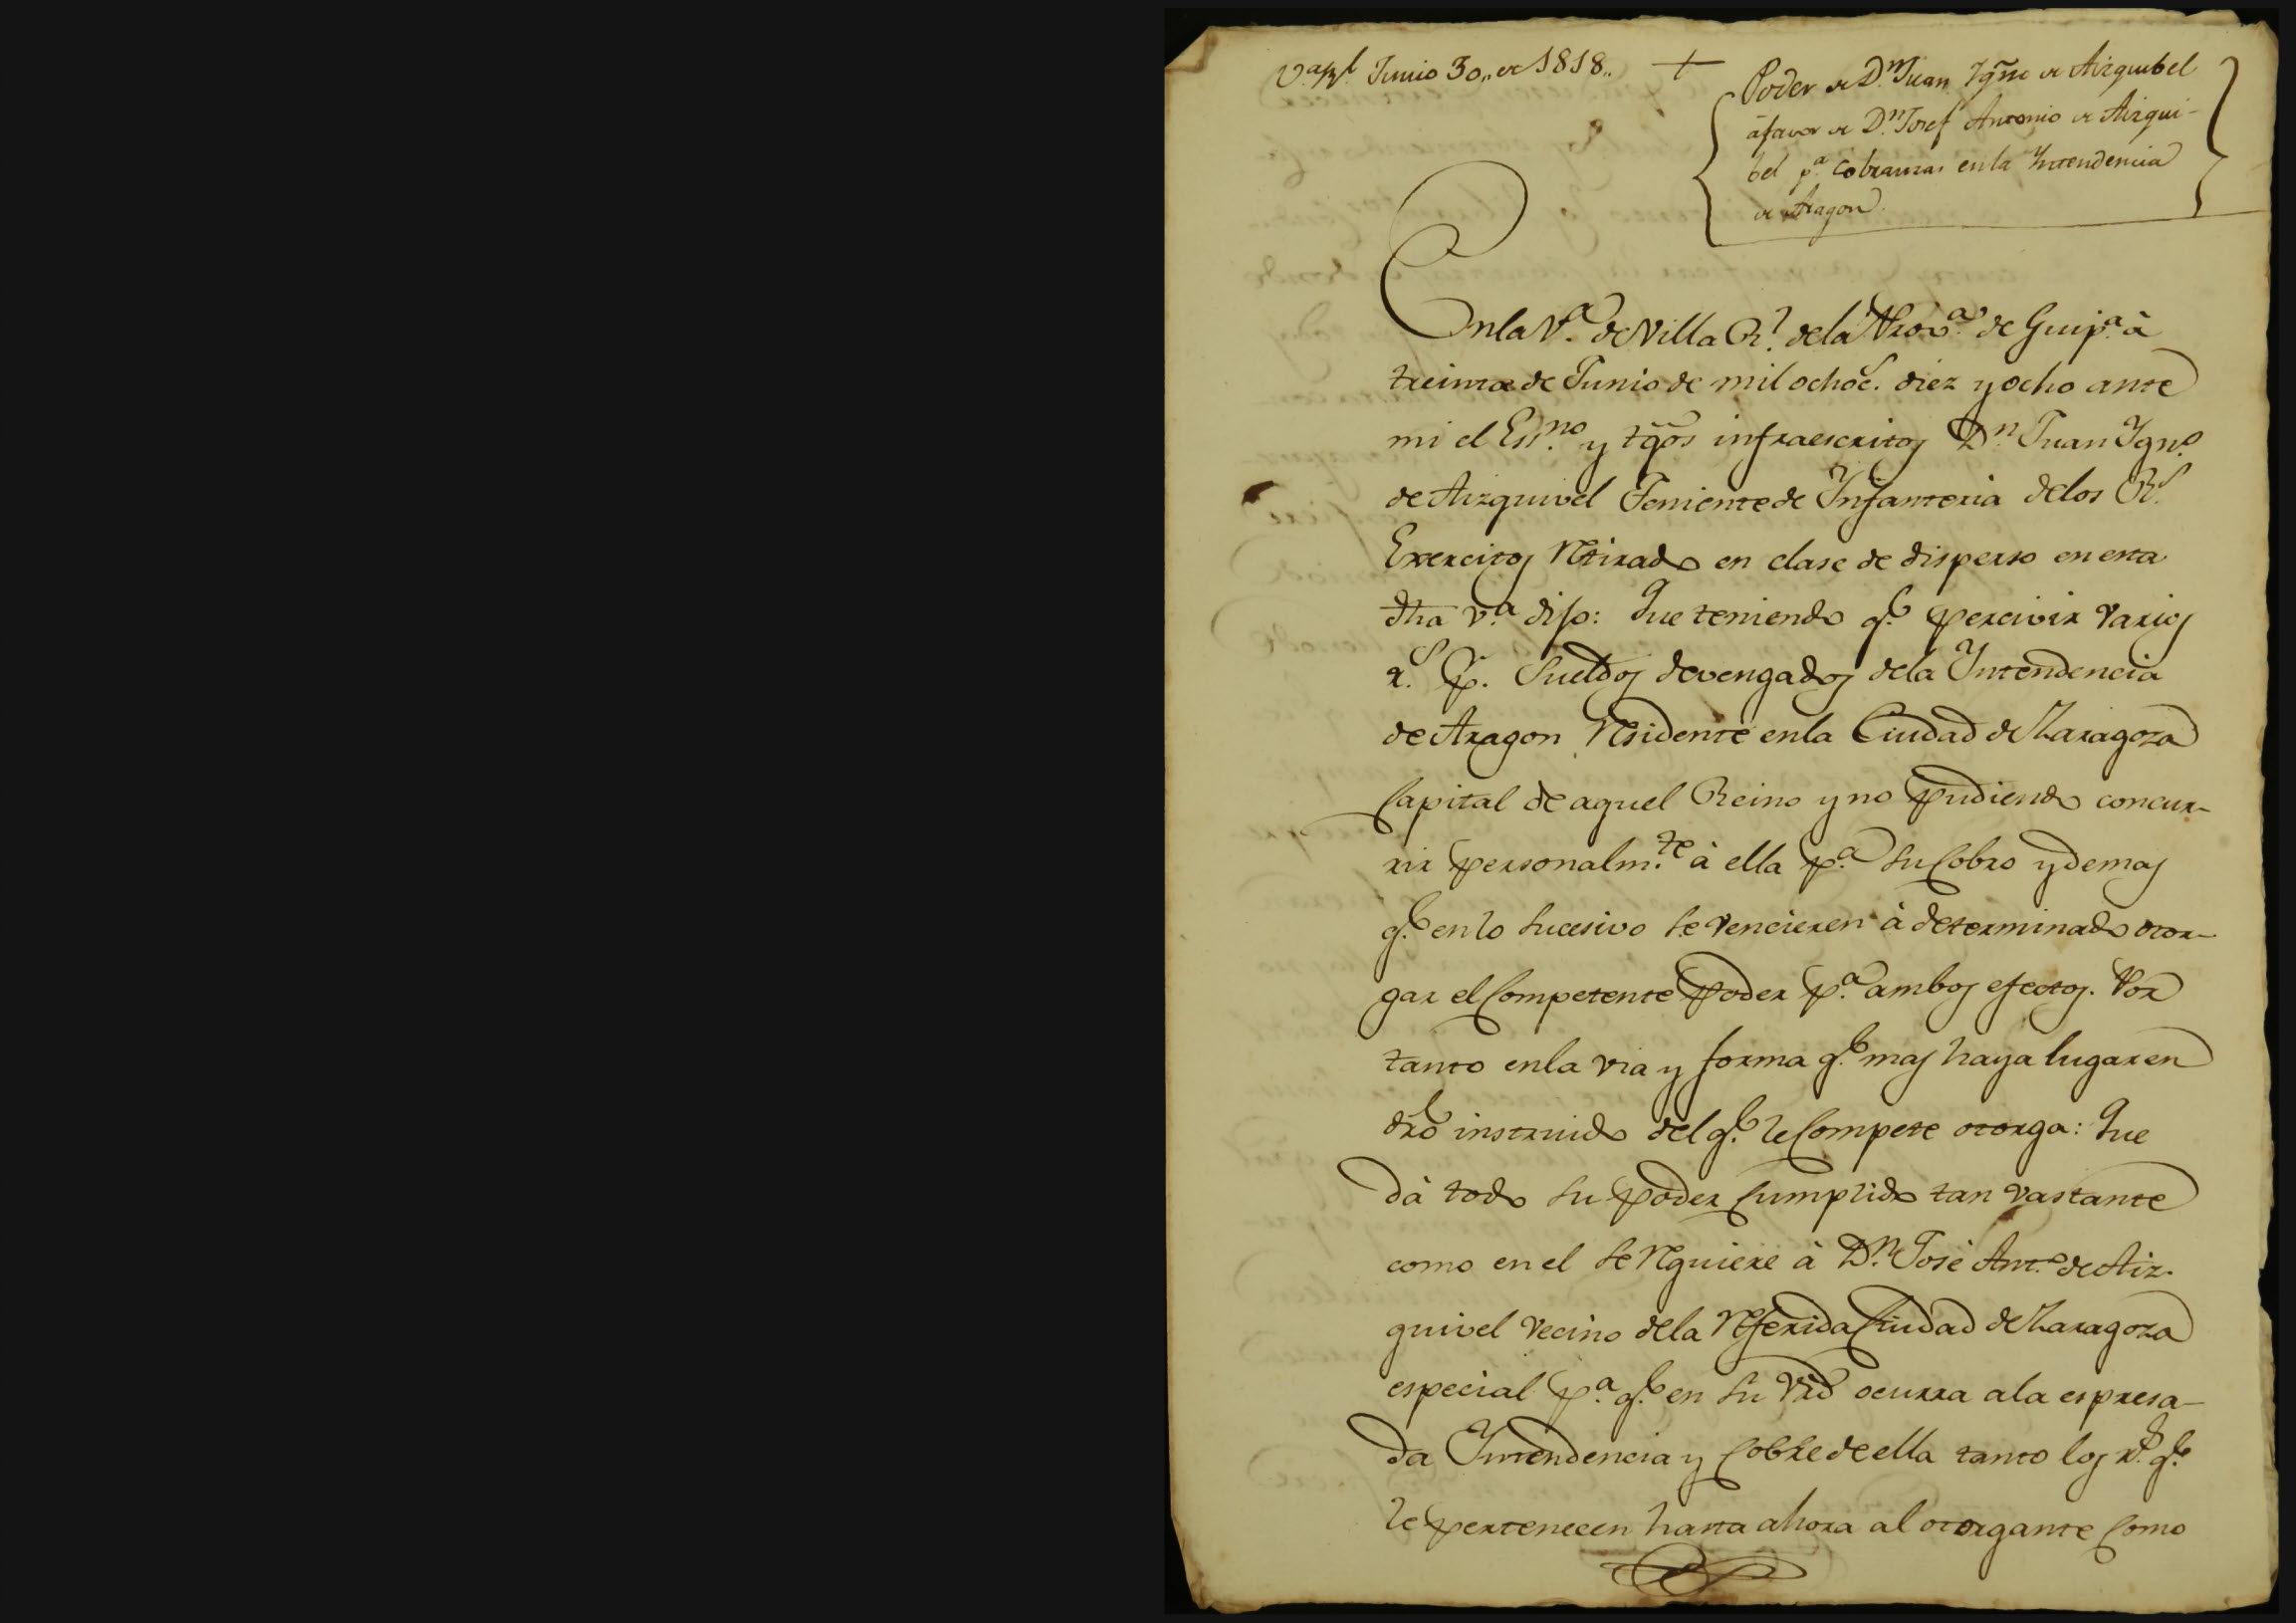 V.ª R.l Junio 30,, de 1818,,
+
Poder de D.n Juan Ygn̄o de Aizquibel
á favor de D.n Josef Antonio de Aizqui-
bel p.a cobranzas en la Yntendencia
de Aragon.
En la V.a de Villa R.l de la Prov.a de Guip.a à
treinta de Junio de mil ochoc.s diez y ocho ante
mi el Ess.no y tg̃os infraescritos D.n Juan Ygn.o
de Aizquivel Teniente de Ynfanteria de los R.s
Exercitos Retirado en clase de disperso en esta
dha v.a dijo: Que teniendo q.e percivir varios
r.s p.r Sueldos devengados de la Yntendencia
de Aragon Residente en la Ciudad de Zaragoza
Capital de aquel Reino y no pudiendo concur-
rir personalm.te à ella p.a su Cobro y demas
q.e en lo sucesivo se vencieren à determinado otor-
gar el Competente Poder p.a ambos efectos. Por
tanto en la via y forma q.e mas haya lugar en
dr̃o instruido del q.e le Compete otorga: Que
dà todo su poder Cumplido tan vastante
como en el se Requiere à D.n Josè Ant.o de Aiz-
quivel vecino de la Referida Ciudad de Zaragoza
especial p.a q.e en su Vrd ocurra a la espresa-
da Yntendencia y Cobre de ella tanto los r.s q.e
le pertenecen hasta ahora al otorgante Como